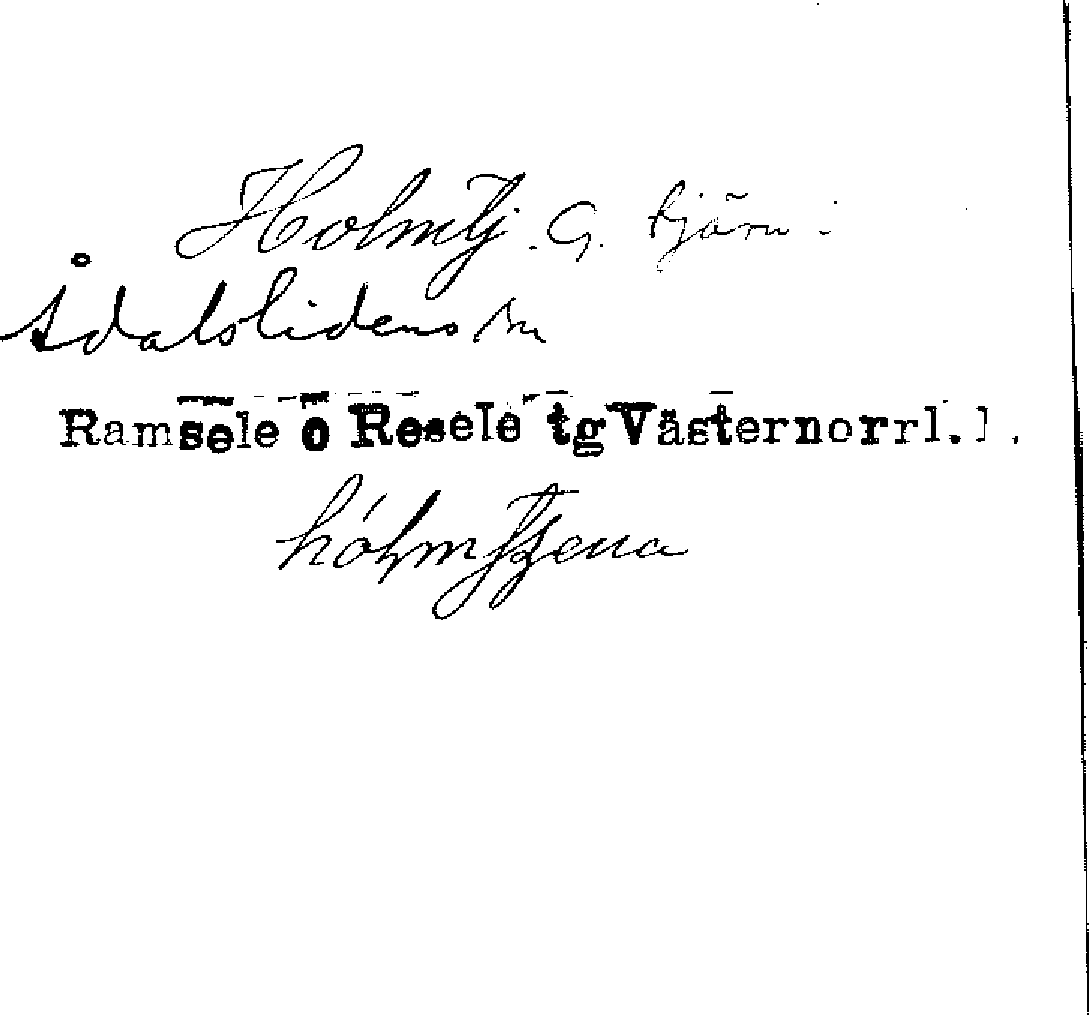 Holmtj. G. tjärn -
Ådalslidens sn
Ramsele o Resele tg Västernorrl.l.